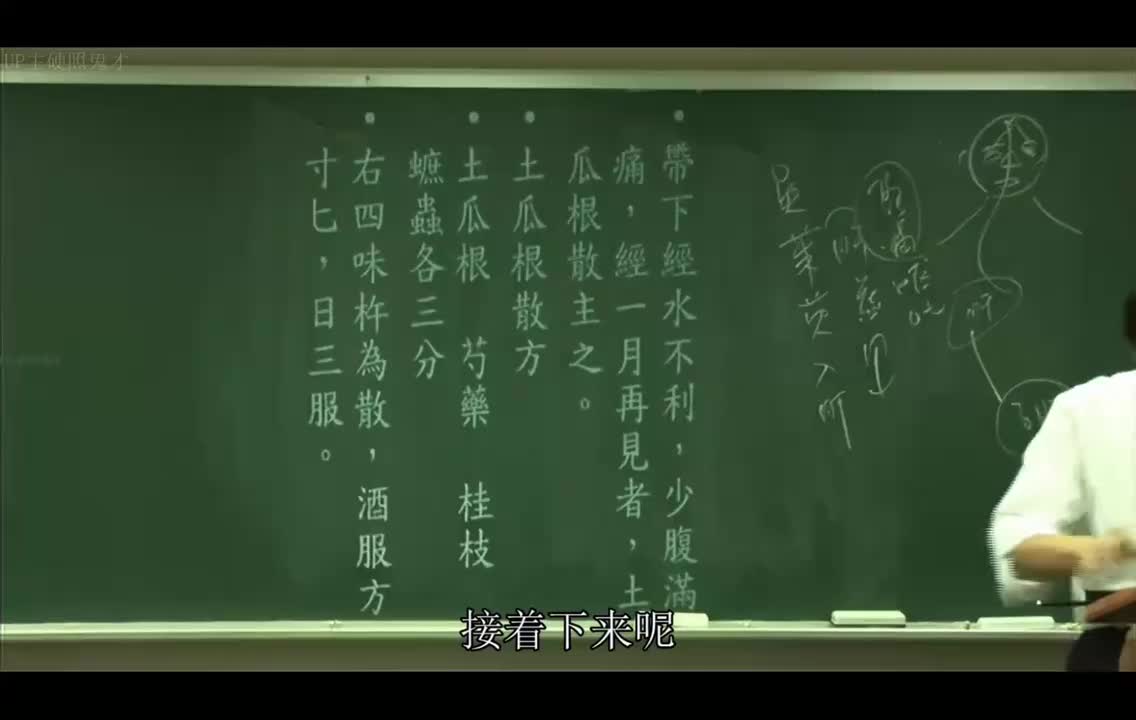 UP主硬照鬼才
帶下經水不利，少腹滿
痛，經一月再見者，土
瓜根散主之。
土瓜根散方
土瓜根 芍藥 桂枝
蟅蟲各三分
右四味杵為散，酒服方
寸匕，日三服。
吳茱萸入肝
接着下来呢